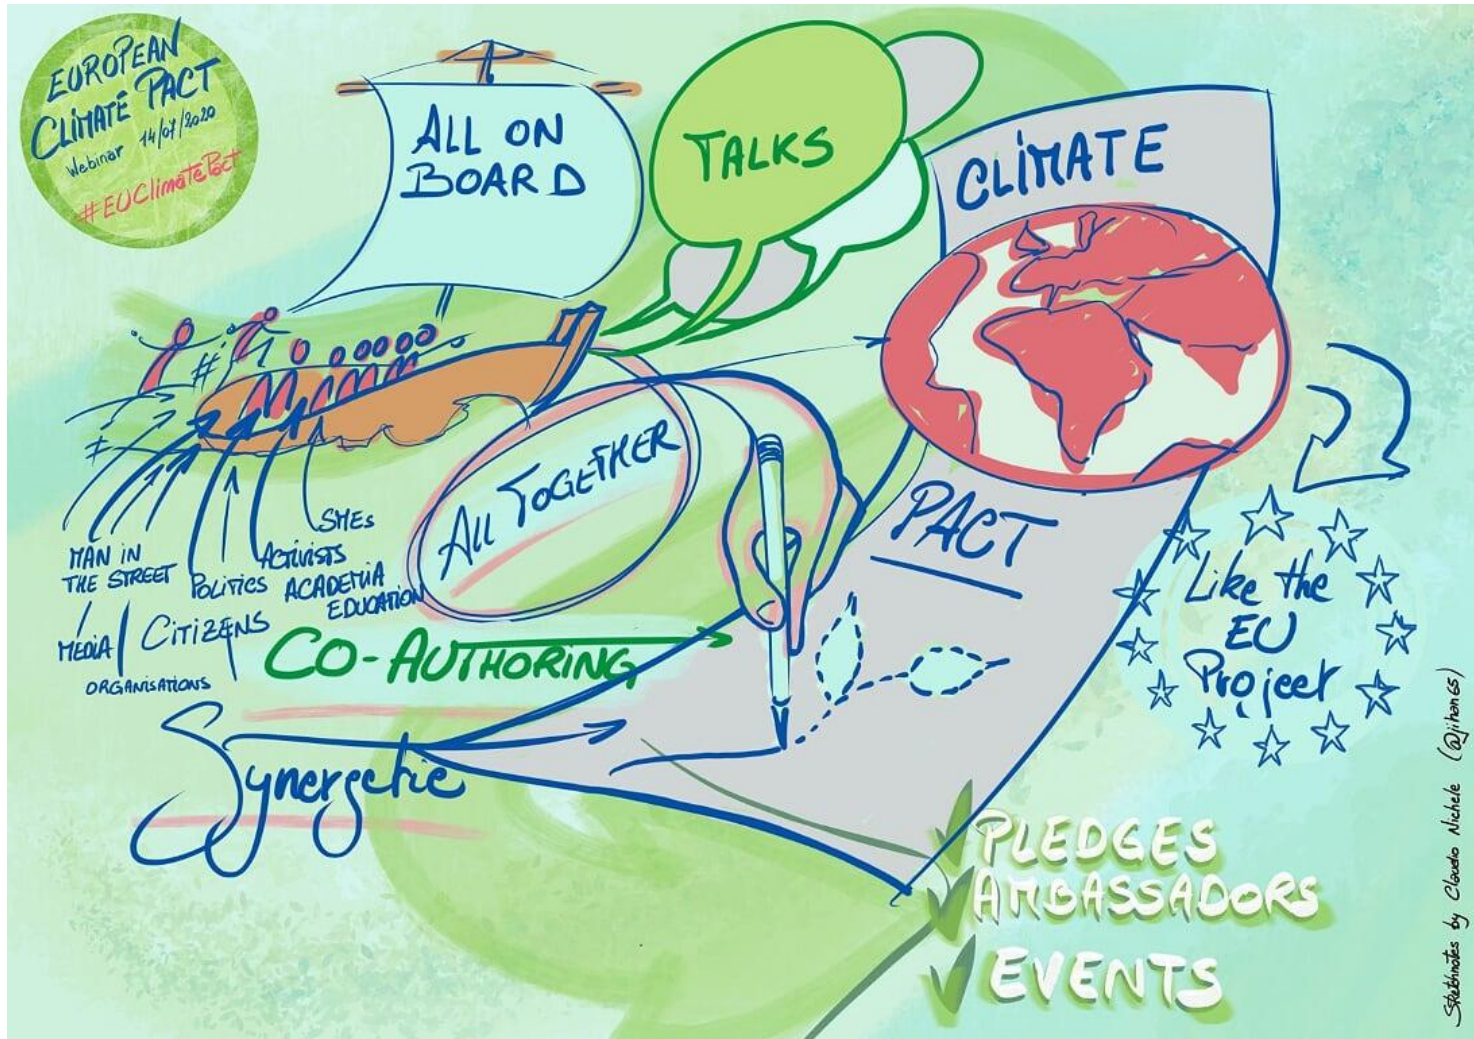 EUROPEAN
CLIMATE PACT
Webinar 14/07/2020
#EUClimatePact
ALL ON
BOARD
TALKS
CLIMATE
PACT
#
All TOGETHER
SMEs
MAN IN
THE STREET
POLITICS
ACTIVISTS
ACADEMIA
EDUCATION
MEDIA
CITIZENS
ORGANISATIONS
CO-AUTHORING
Synergetic
Like the
EU
Project
PLEDGES
AMBASSADORS
EVENTS
Sketchnotes by Claudio Nichele (@jihan65)